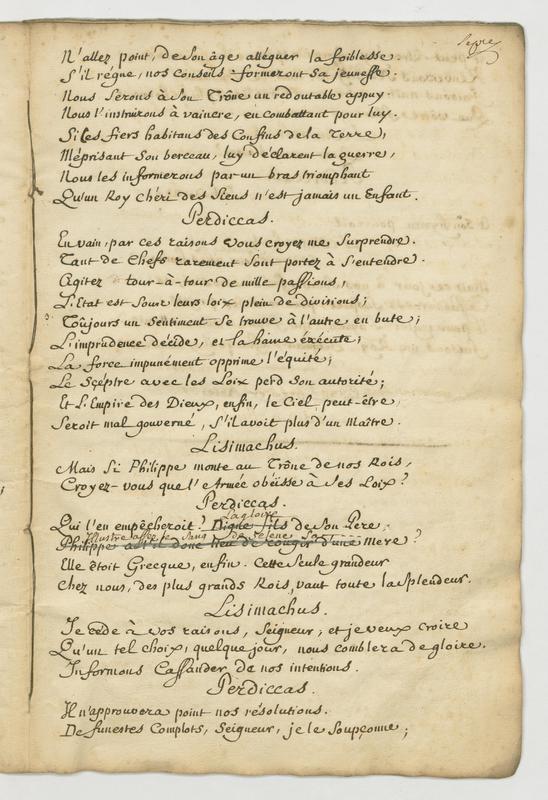 N'allez point, de son âge alléguer la foiblesse.
S'il regne, nos Conseils formeront sa jeunesse.
Nous serons à son Trône un redoutable appuy.
Nous l'instruirons à vaincre, en combattant pour luy.
Si les fiers habitans des Confins de la Terre,
Méprisant son berceau, luy déclarent la guerre,
Nous les informerons par un bras triomphant
Qu'un Roy chéri des siens n'est jamais un Enfant.
Perdiccas.
En vain, par ces raisons vous croyez me surprendre.
Tant de Chefs rarement sont portez à s'entendre.
Agitez tour-à-tour de mille passions,
L'Etat est sous leurs loix plein de divisions;
Toûjours un sentiment se trouve à l'autre en bute;
L'imprudence décide, et la haine éxécute;
La force impunément opprime l'équité;
Le Scéptre avec les Loix perd son autorité;
Et l'Empire des Dieux, enfin, le Ciel, peut-être,
Seroit mal gouverné, s'il avoit plus d'un Maître.
Lisimachus.
Mais si Philippe monte au Trône de nos Rois,
Croyez-vous que l'Armée obéisse à ses Loix?
Perdiccas.
La gloire
Qui l'en empêcheroit? Digne fils de son Pere,
Illustre assez le sang sa
Philippe a-t'il donc lieu de rougir d'une Mere?
Elle étoit Grecque, enfin. Cette seule grandeur
Chez nous, des plus grands Rois, vaut toute la splendeur.
Lisimachus.
Je cède à vos raisons, Seigneur, et je veux croire
Qu'un tel choix, quelque jour, nous comblera de gloire.
Informons Cassander de nos intentions.
Perdiccas.
Il n'approuvera point nos résolutions.
De funestes Complots, Seigneur, je le soupçonne;